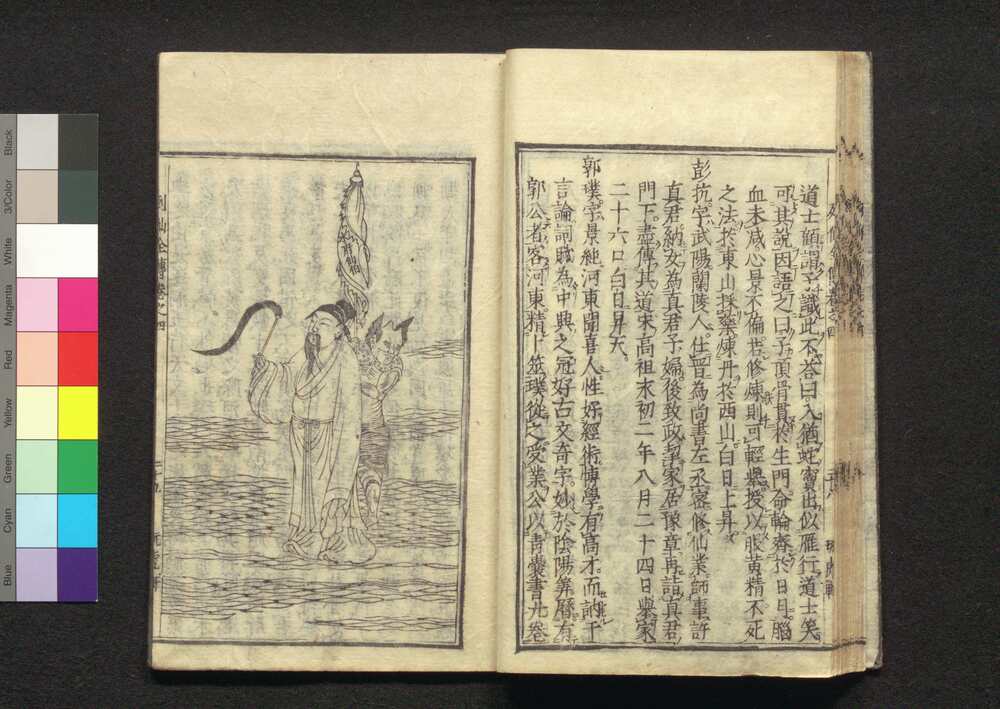 道士顧謂子識此不荅曰入猶蛇竇出似雁行道士笑
可其說因語之曰予頂骨貫於生門命輪齊於日月腦
血未减心景不偏若修煉則可輕舉授以服黄精不死
之法於東山採藥煉丹於西山白日上昇
彭抗字武陽蘭陵人仕晋為尚書左丞密修仙業師事許
真君納女為真君子婦後致政挈家居豫章再詣真君
門下盡傳其道宋高祖末初二年八月二十四日舉家
二十六口白日昇天
郭璞字景純河東聞喜人性好經術博學有高才而訥于
言論詞賦為中興之冠好古文奇字妙於陰陽筭曆有
郭公者客河東精卜筮璞從之受業公以青囊書九卷
列仙全傳卷之四
Black
3/Color
White
Magenta
Red
Yellow
Green
Cyan
Blue